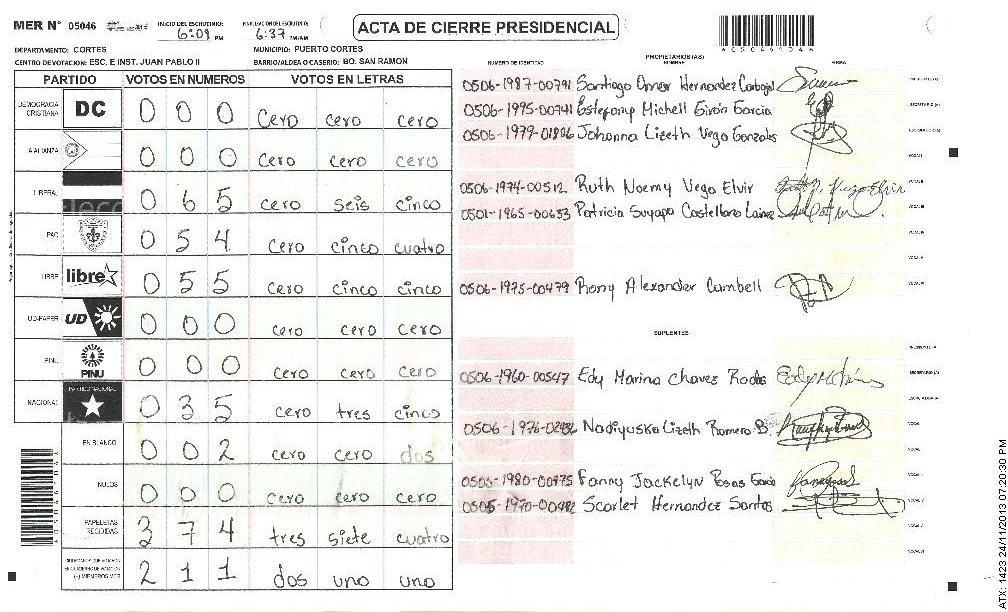 MER N° 05046 INICIO DEL ESCRUTINIO: 6:09 PM FINALIZACION DEL ESCRUTINIO: 6:37 PM/AM ACTA DE CIERRE PRESIDENCIAL 0050461344
DEPARTAMENTO: CORTES MUNICIPIO: PUERTO CORTES
CENTRO DE VOTACION: ESC. E INST. JUAN PABLO II BARRIO/ALDEA O CASERIO: BO. SAN RAMON
PARTIDO VOTOS EN NUMEROS VOTOS EN LETRAS
DEMOCRACIA CRISTIANA DC 0 0 0 cero cero cero
ALIANZA 0 0 0 cero cero cero
LIBERAL 0 6 5 cero seis cinco
PAC 0 5 4 cero cinco cuatro
LIBRE libre 0 5 5 cero cinco cinco
UD-FAPER UD 0 0 0 cero cero cero
PINU PINU 0 0 0 cero cero cero
NACIONAL PARTIDO NACIONAL 0 3 5 cero tres cinco
EN BLANCO 0 0 2 cero cero dos
NULOS 0 0 0 cero cero cero
PAPELETAS RECIBIDAS 3 7 4 tres siete cuatro
(+) MIEMBROS MER 2 1 1 dos uno uno
PROPIETARIOS (AS)
NUMERO DE IDENTIDAD NOMBRE FIRMA
0506-1987-00791 Santiago Omar Hernandez Carbajal
0506-1995-00741 Estefany Michell Giron Garcia
0506-1979-01806 Johanna Lizeth Vega Gonzales
0506-1974-00512 Ruth Noemy Vega Elvir
0501-1965-00653 Patricia Suyapa Castellano Lainez
0506-1975-00479 Rony Alexander Cambell
SUPLENTES
0506-1960-00547 Edy Marina Chavez Rodas
0506-1976-02486 Nadiyuska Lizeth Romero B.
0506-1980-00775 Fanny Jackelyn Rosas Garcia
0505-1970-00482 Scarlet Hernandez Santos
ATX: 1423 24/11/2013 07:20:30 PM